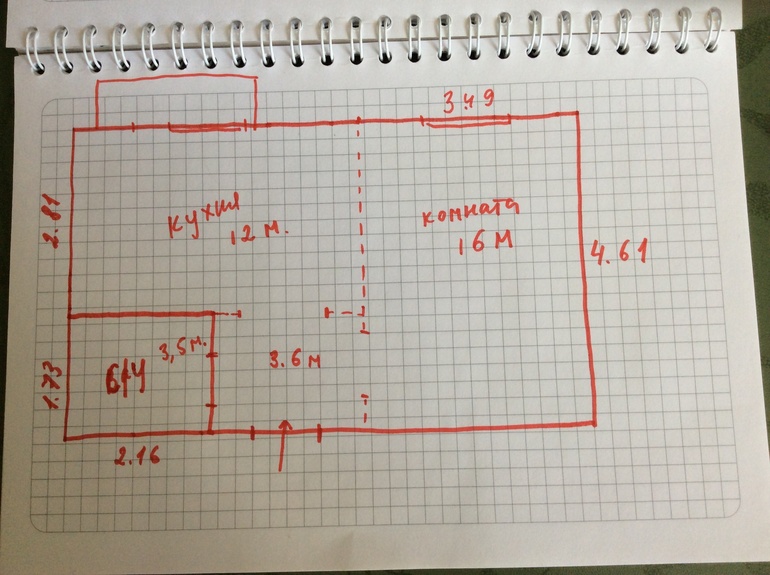 3.49
2.81
кухня
12 м.
комната
16 м
4.61
3,5 м.
1.73
3.6 м
2.16